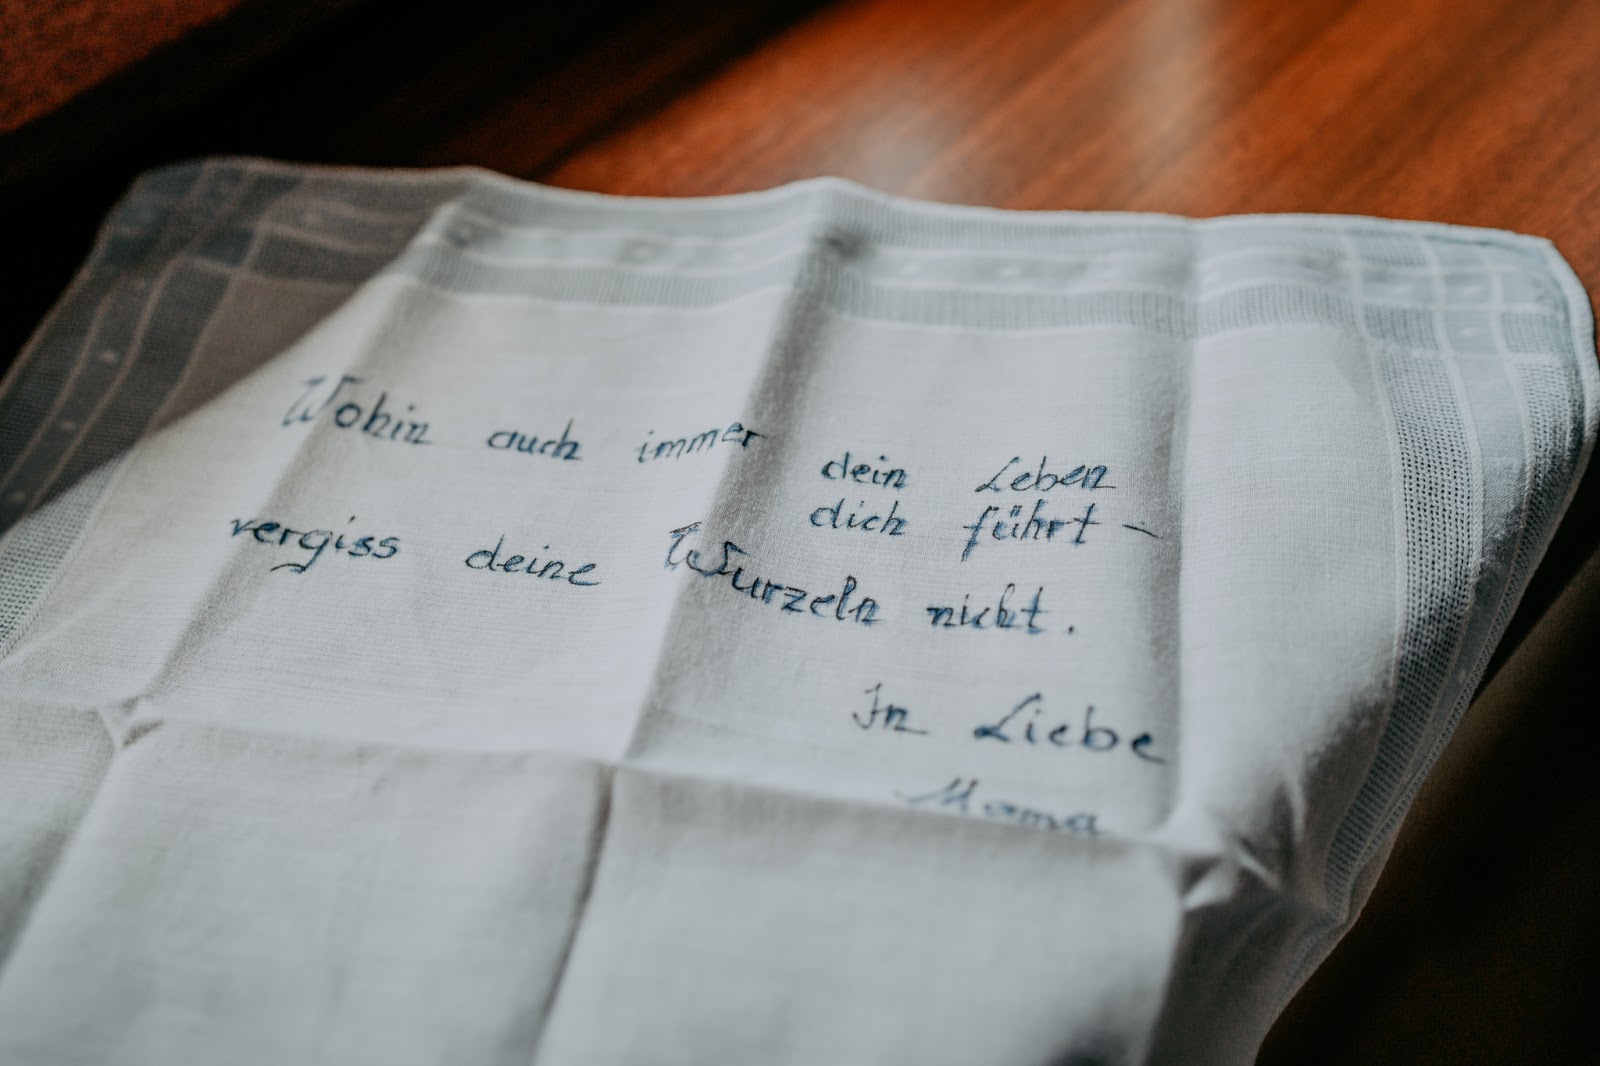 Wohin auch immer dein Leben
dich führt –
vergiss deine Wurzeln nicht.
In Liebe
Mama